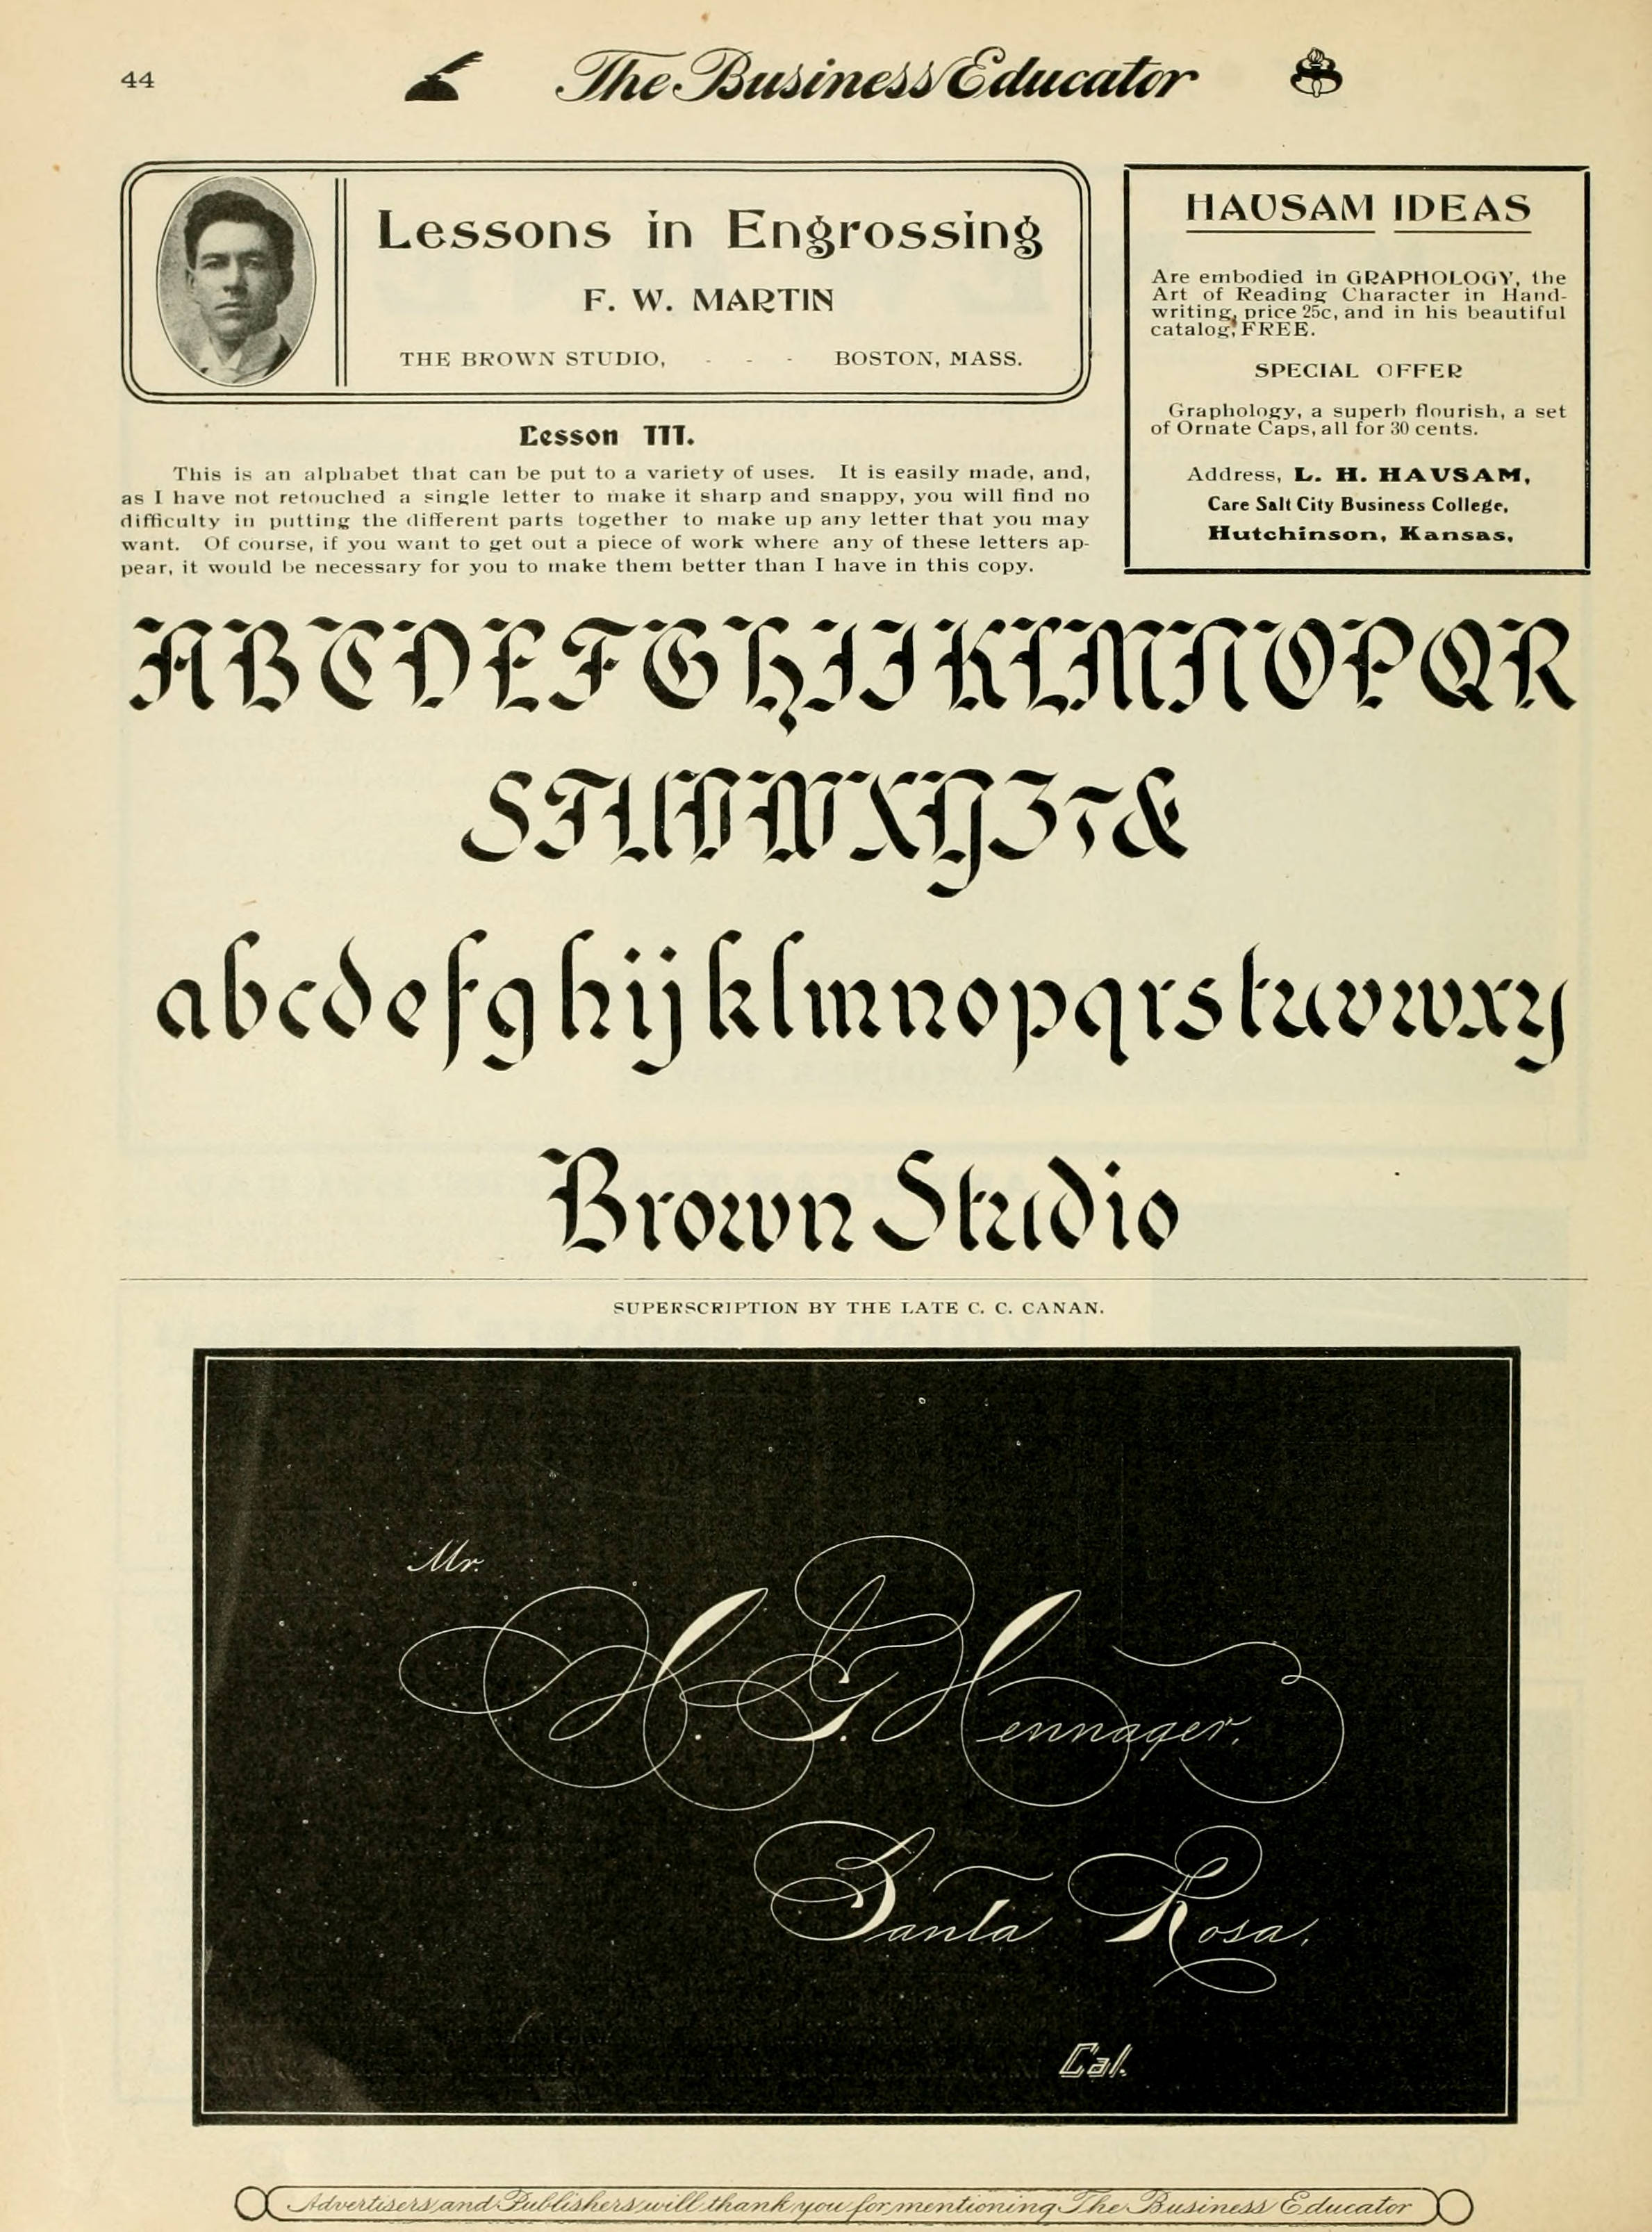 44
The Business Educator
Lessons in Engrossing
F. W. MARTIN
THE BROWN STUDIO, - - - BOSTON, MASS.
Lesson III.
This is an alphabet that can be put to a variety of uses. It is easily made, and,
as I have not retouched a single letter to make it sharp and snappy, you will find no
difficulty in putting the different parts together to make up any letter that you may
want. Of course, if you want to get out a piece of work where any of these letters ap-
pear, it would be necessary for you to make them better than I have in this copy.
HAUSAM IDEAS
Are embodied in GRAPHOLOGY, the
Art of Reading Character in Hand-
writing, price 25c, and in his beautiful
catalog, FREE.
SPECIAL OFFER
Graphology, a superb flourish, a set
of Ornate Caps, all for 30 cents.
Address, L. H. HAUSAM,
Care Salt City Business College,
Hutchinson, Kansas.
ABCDEFGHIJKLMNOPQR
STUVWXYZ7&
abcdefghijklmnopqrstuvwxy
Brown Studio
SUPERSCRIPTION BY THE LATE C. C. CANAN.
Mr.
H. G. Hennager.
Santa Rosa.
Cal.
Advertisers and Publishers will thank you for mentioning The Business Educator